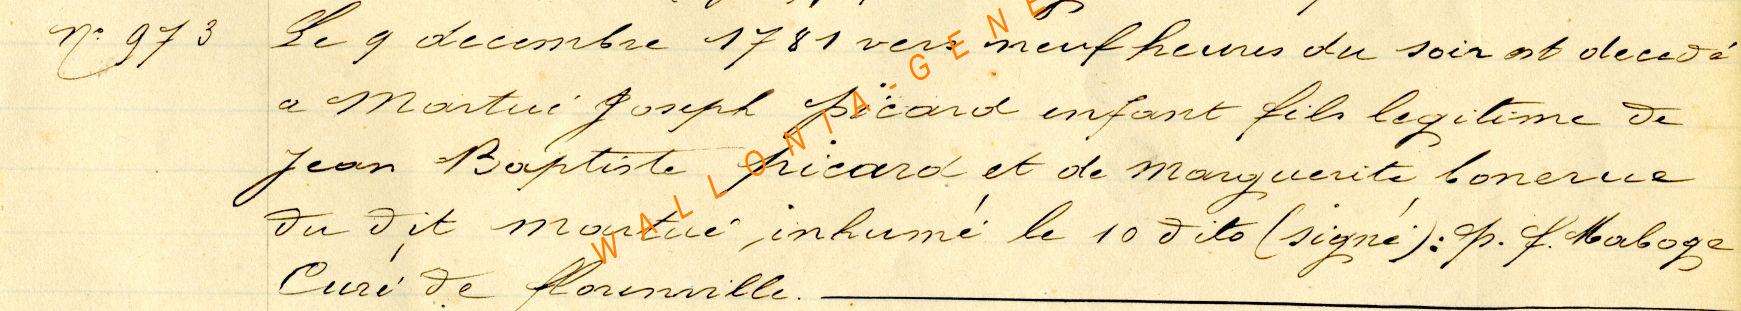 N° 973 Le 9 decembre 1781 vers neuf heures du soir est decedé
a Martué Joseph picard enfant fils legitime de
Jean Baptiste picard et de marguerite bonerue
du dit martué, inhumé le 10 dito (signé): p. f. Maboge
Curé de florenville.
WALLONIA-GENE